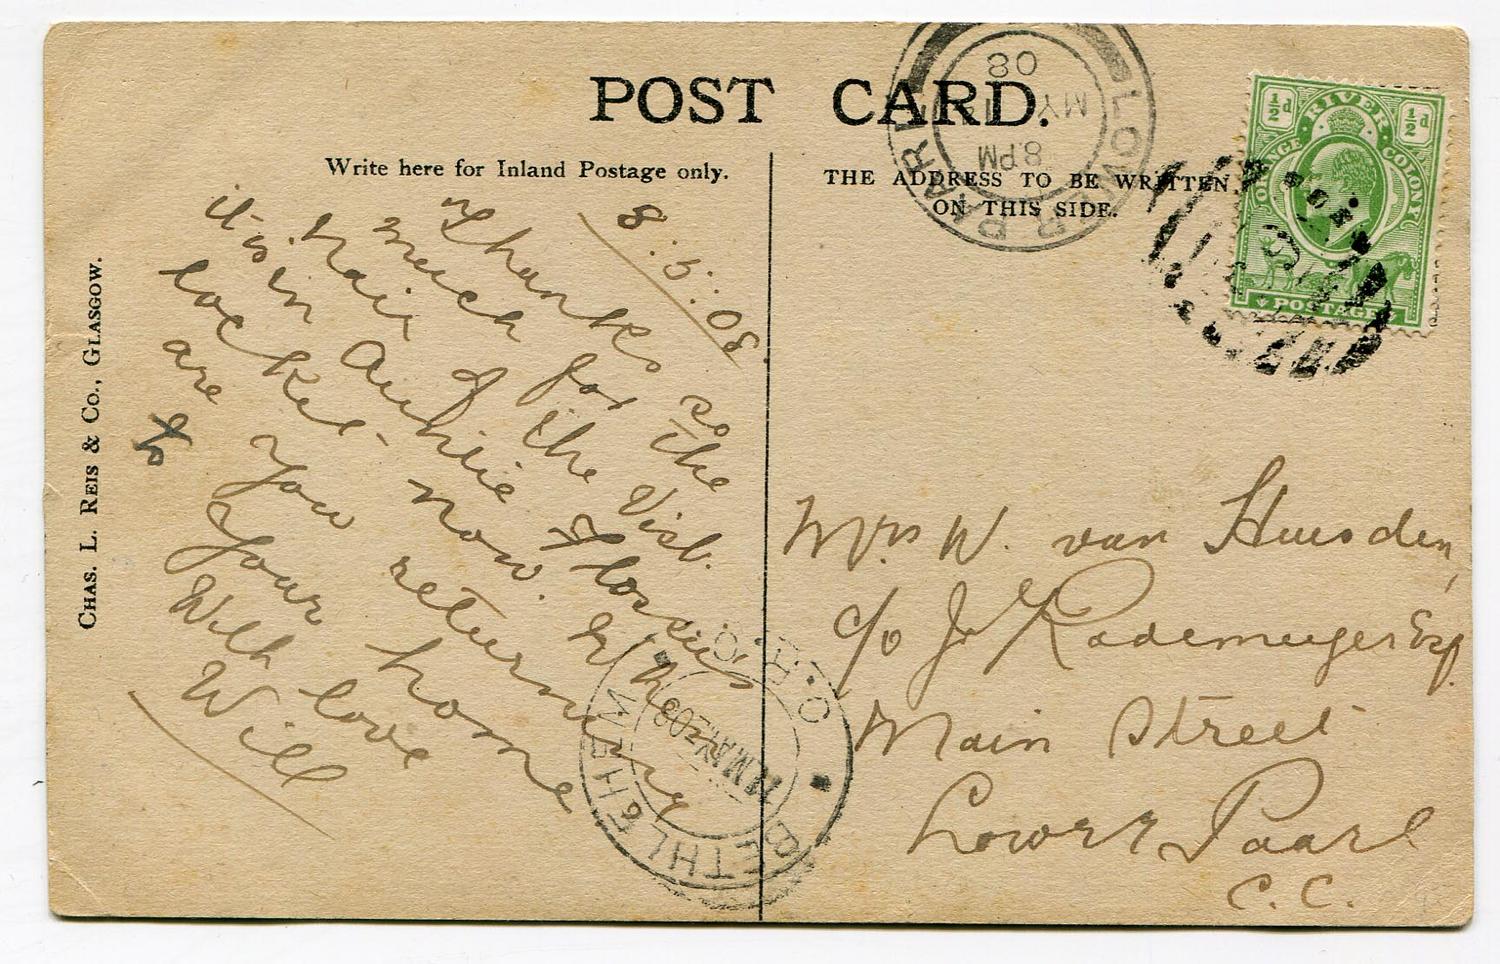 POST CARD.
Write here for Inland Postage only.
THE ADDRESS TO BE WRITTEN
ON THIS SIDE.
CHAS. L. REIS & Co., GLASGOW.
8.5.08.
Thanks so
much for the
hair & the visit.
it is in Auntie Flossie's
locket now. When
are you returning
to your home
With love
Will
Mrs W. van Huusden,
c/o J. Rademeyer Esq.
Main Street
Lower Paarl
C.C.
LOWER PAARL
8 PM
MY
08
ORANGE RIVER COLONY
½d ½d
POSTAGE
BETHLEHEM
O.R.C.
MAY 08